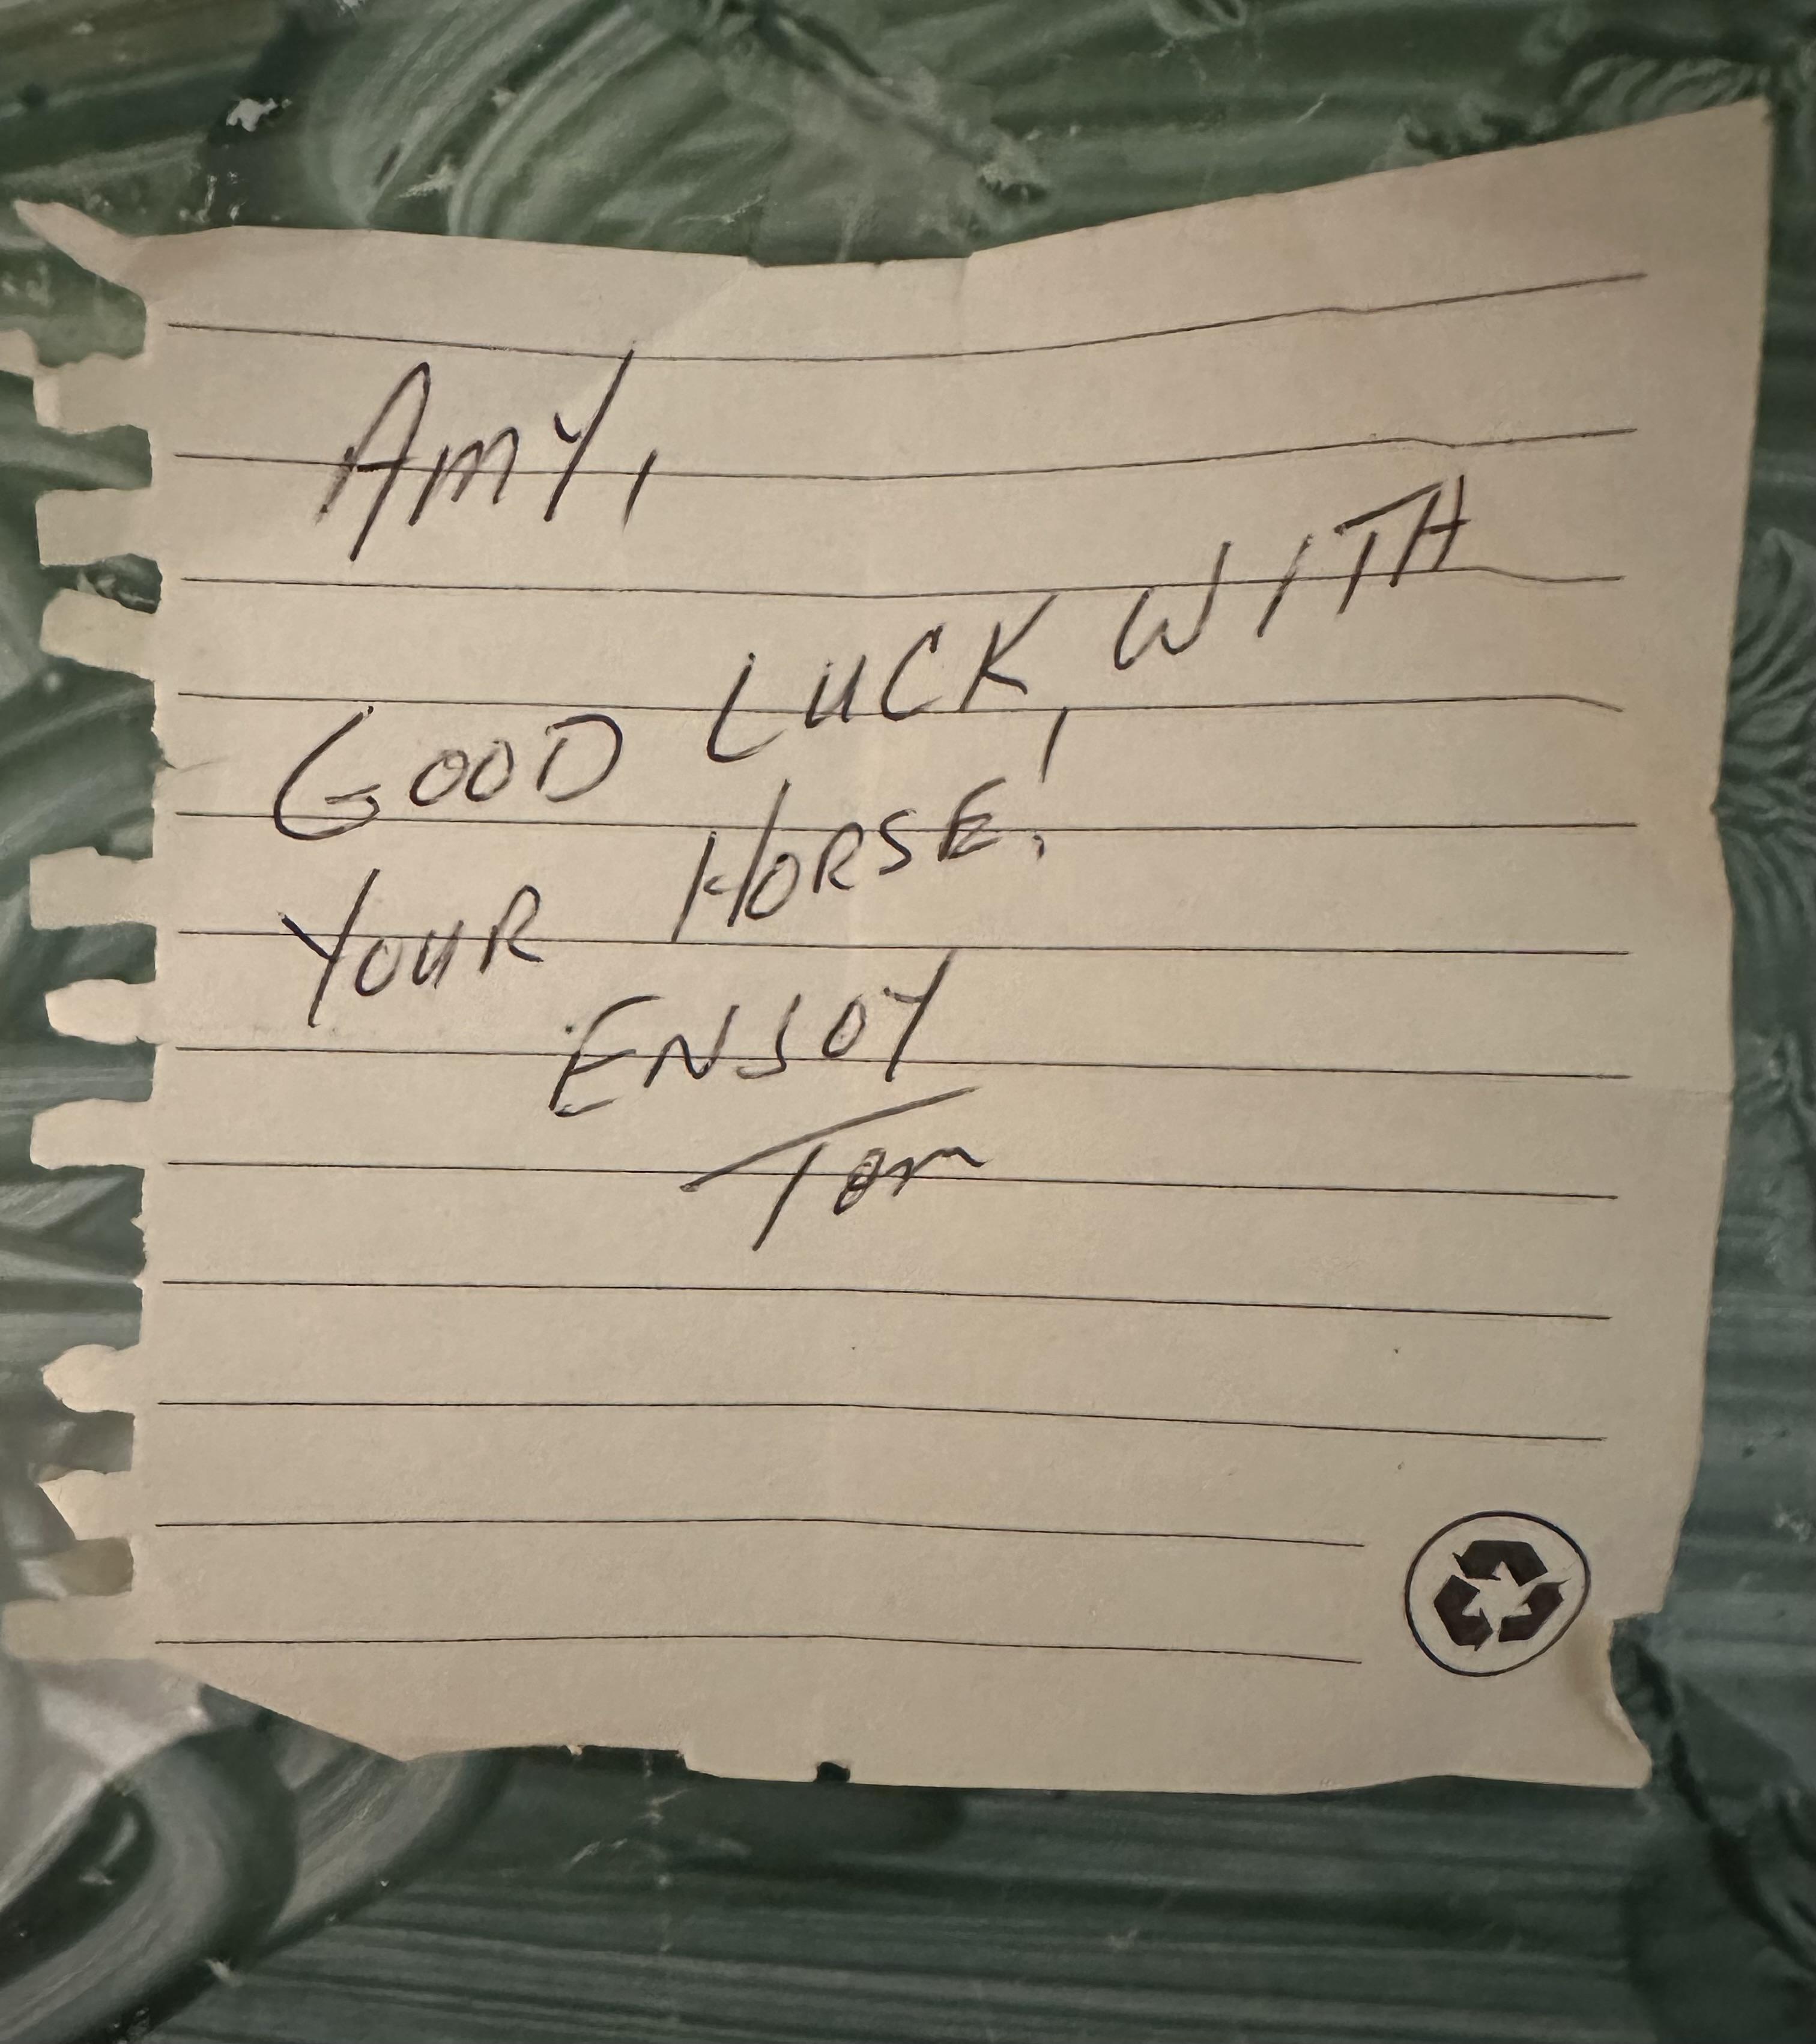 AMY,
GOOD LUCK WITH
YOUR HORSE!
ENJOY
Tom